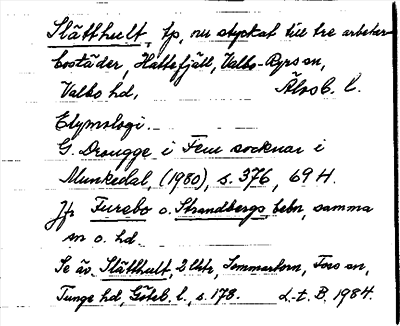 Slätthult, tp, nu styckat till tre arbetar-
bostäder, Hattefjäll, Valbo-Ryrs sn,
Valbo hd, Älvsb. l.
Etymologi.
G. Drougge i Fem socknar i
Munkedal, (1980), s. 376, 69 H.
Jfr Furebo o. Strandbergs, bebn, samma
sn o. hd
Se äv. Slätthult, 2 lhtr, Lommartorn, Foss sn,
Tunge hd, Göteb. l., s. 178. L-t. B. 1984.